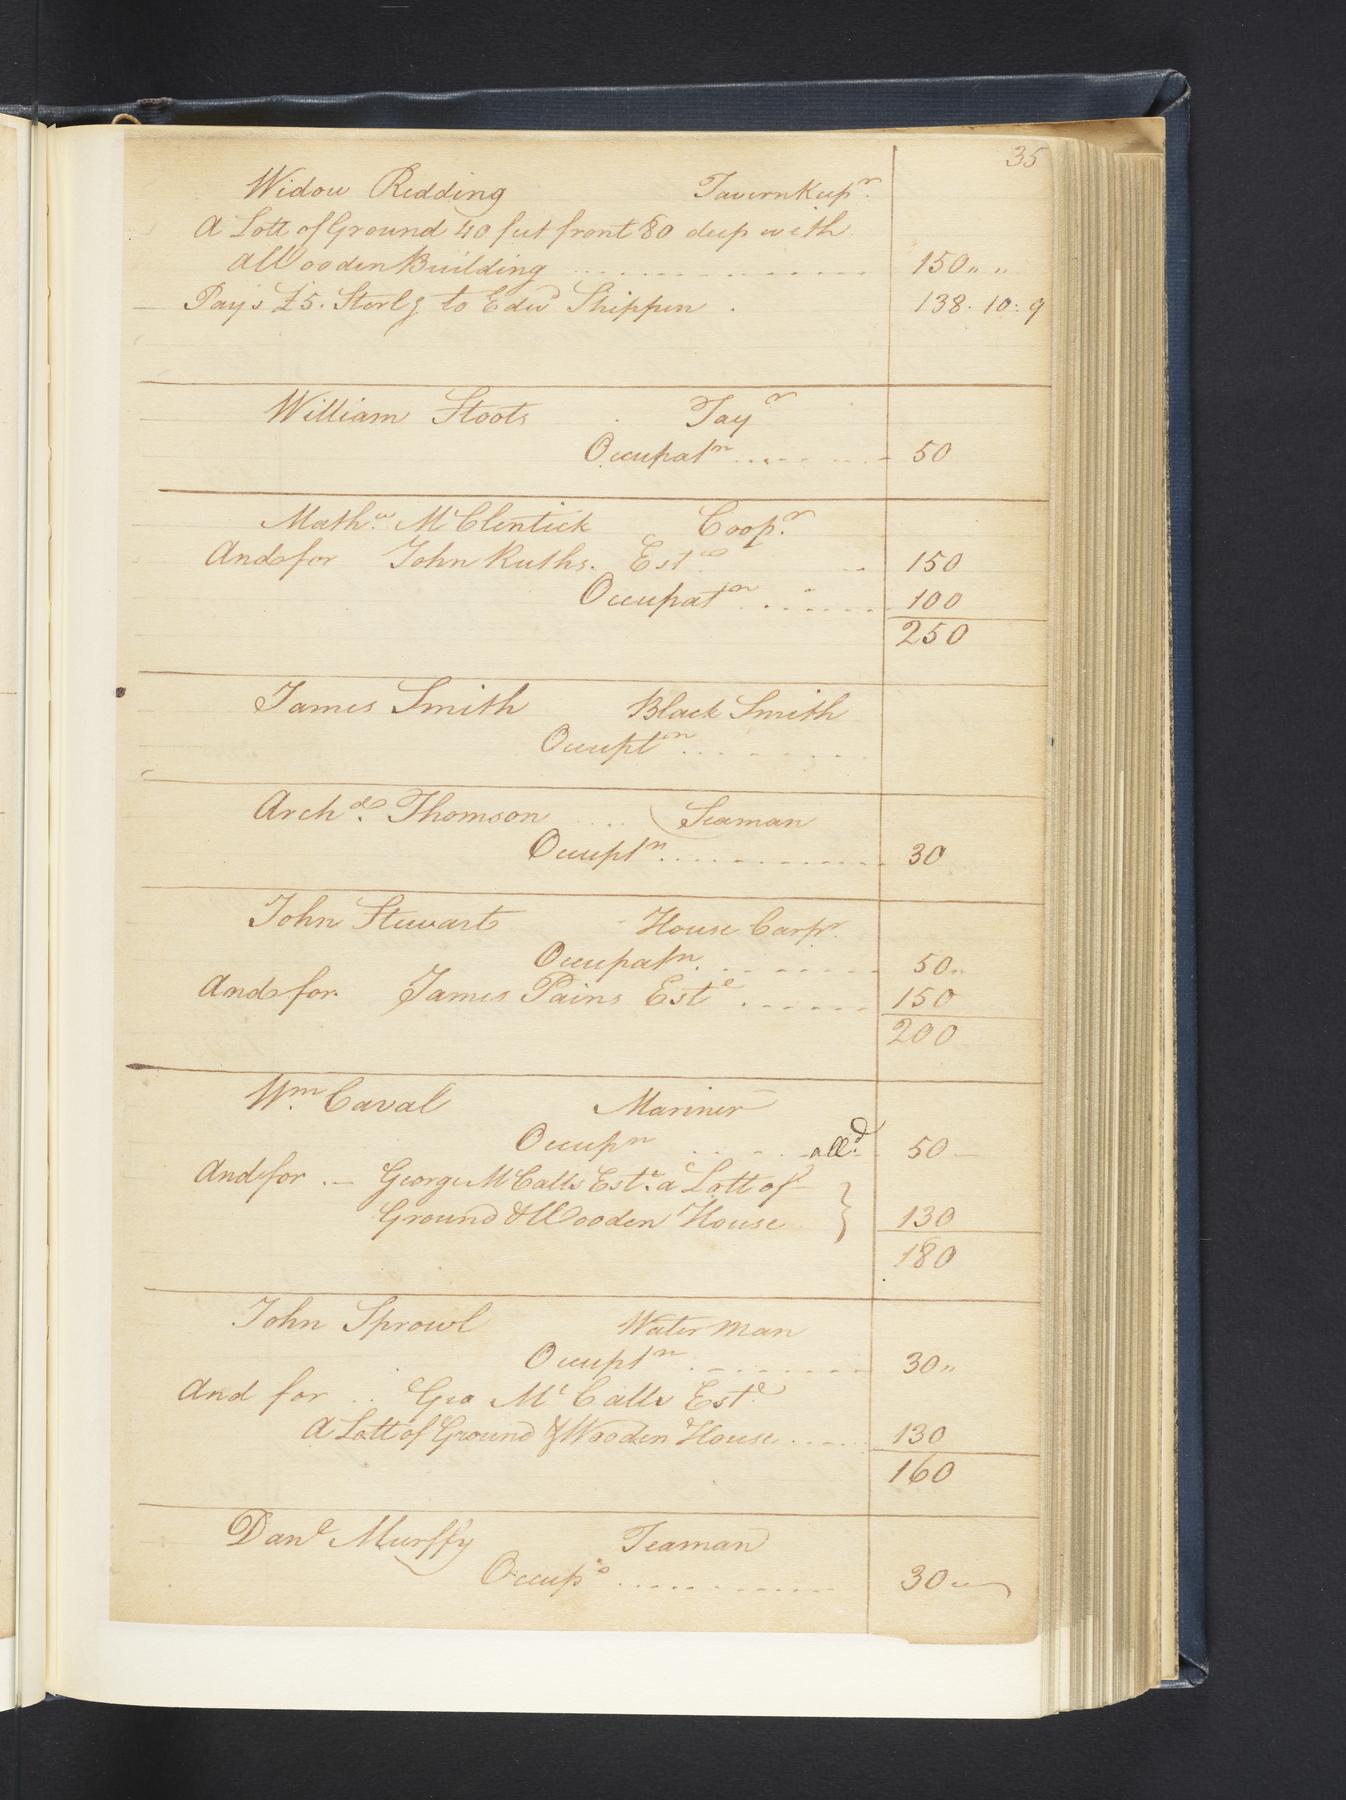 35
Widow Redding Tavernkeepr.
A Lott of Ground 40 feet front 80 deep with
A Wooden Building 150 " "
Pay's £5. Sterlg to Edwd Shippen . 138. 10. 9
William Stoots Tayr
Occupatn 50
Mathw. McClentick Coopr.
And for John Ruths. Este. 150
Occupatn 100
250
James Smith Black Smith
Occuptn
Archd. Thomson Seaman
Occuptn 30
John Stewart House Carpr.
Occupatn 50"
And for James Pains Este 150
200
Wm. Caval Mariner
Occupn alld. 50
And for George McCalls Este. a Lott of
Ground & Wooden House } 130
180
John Sprowl Waterman
Occuptn 30"
And for Geo McCalls Este
A Lott of Ground & Wooden House 130
160
Danl Murffy Seaman
Occupn 30